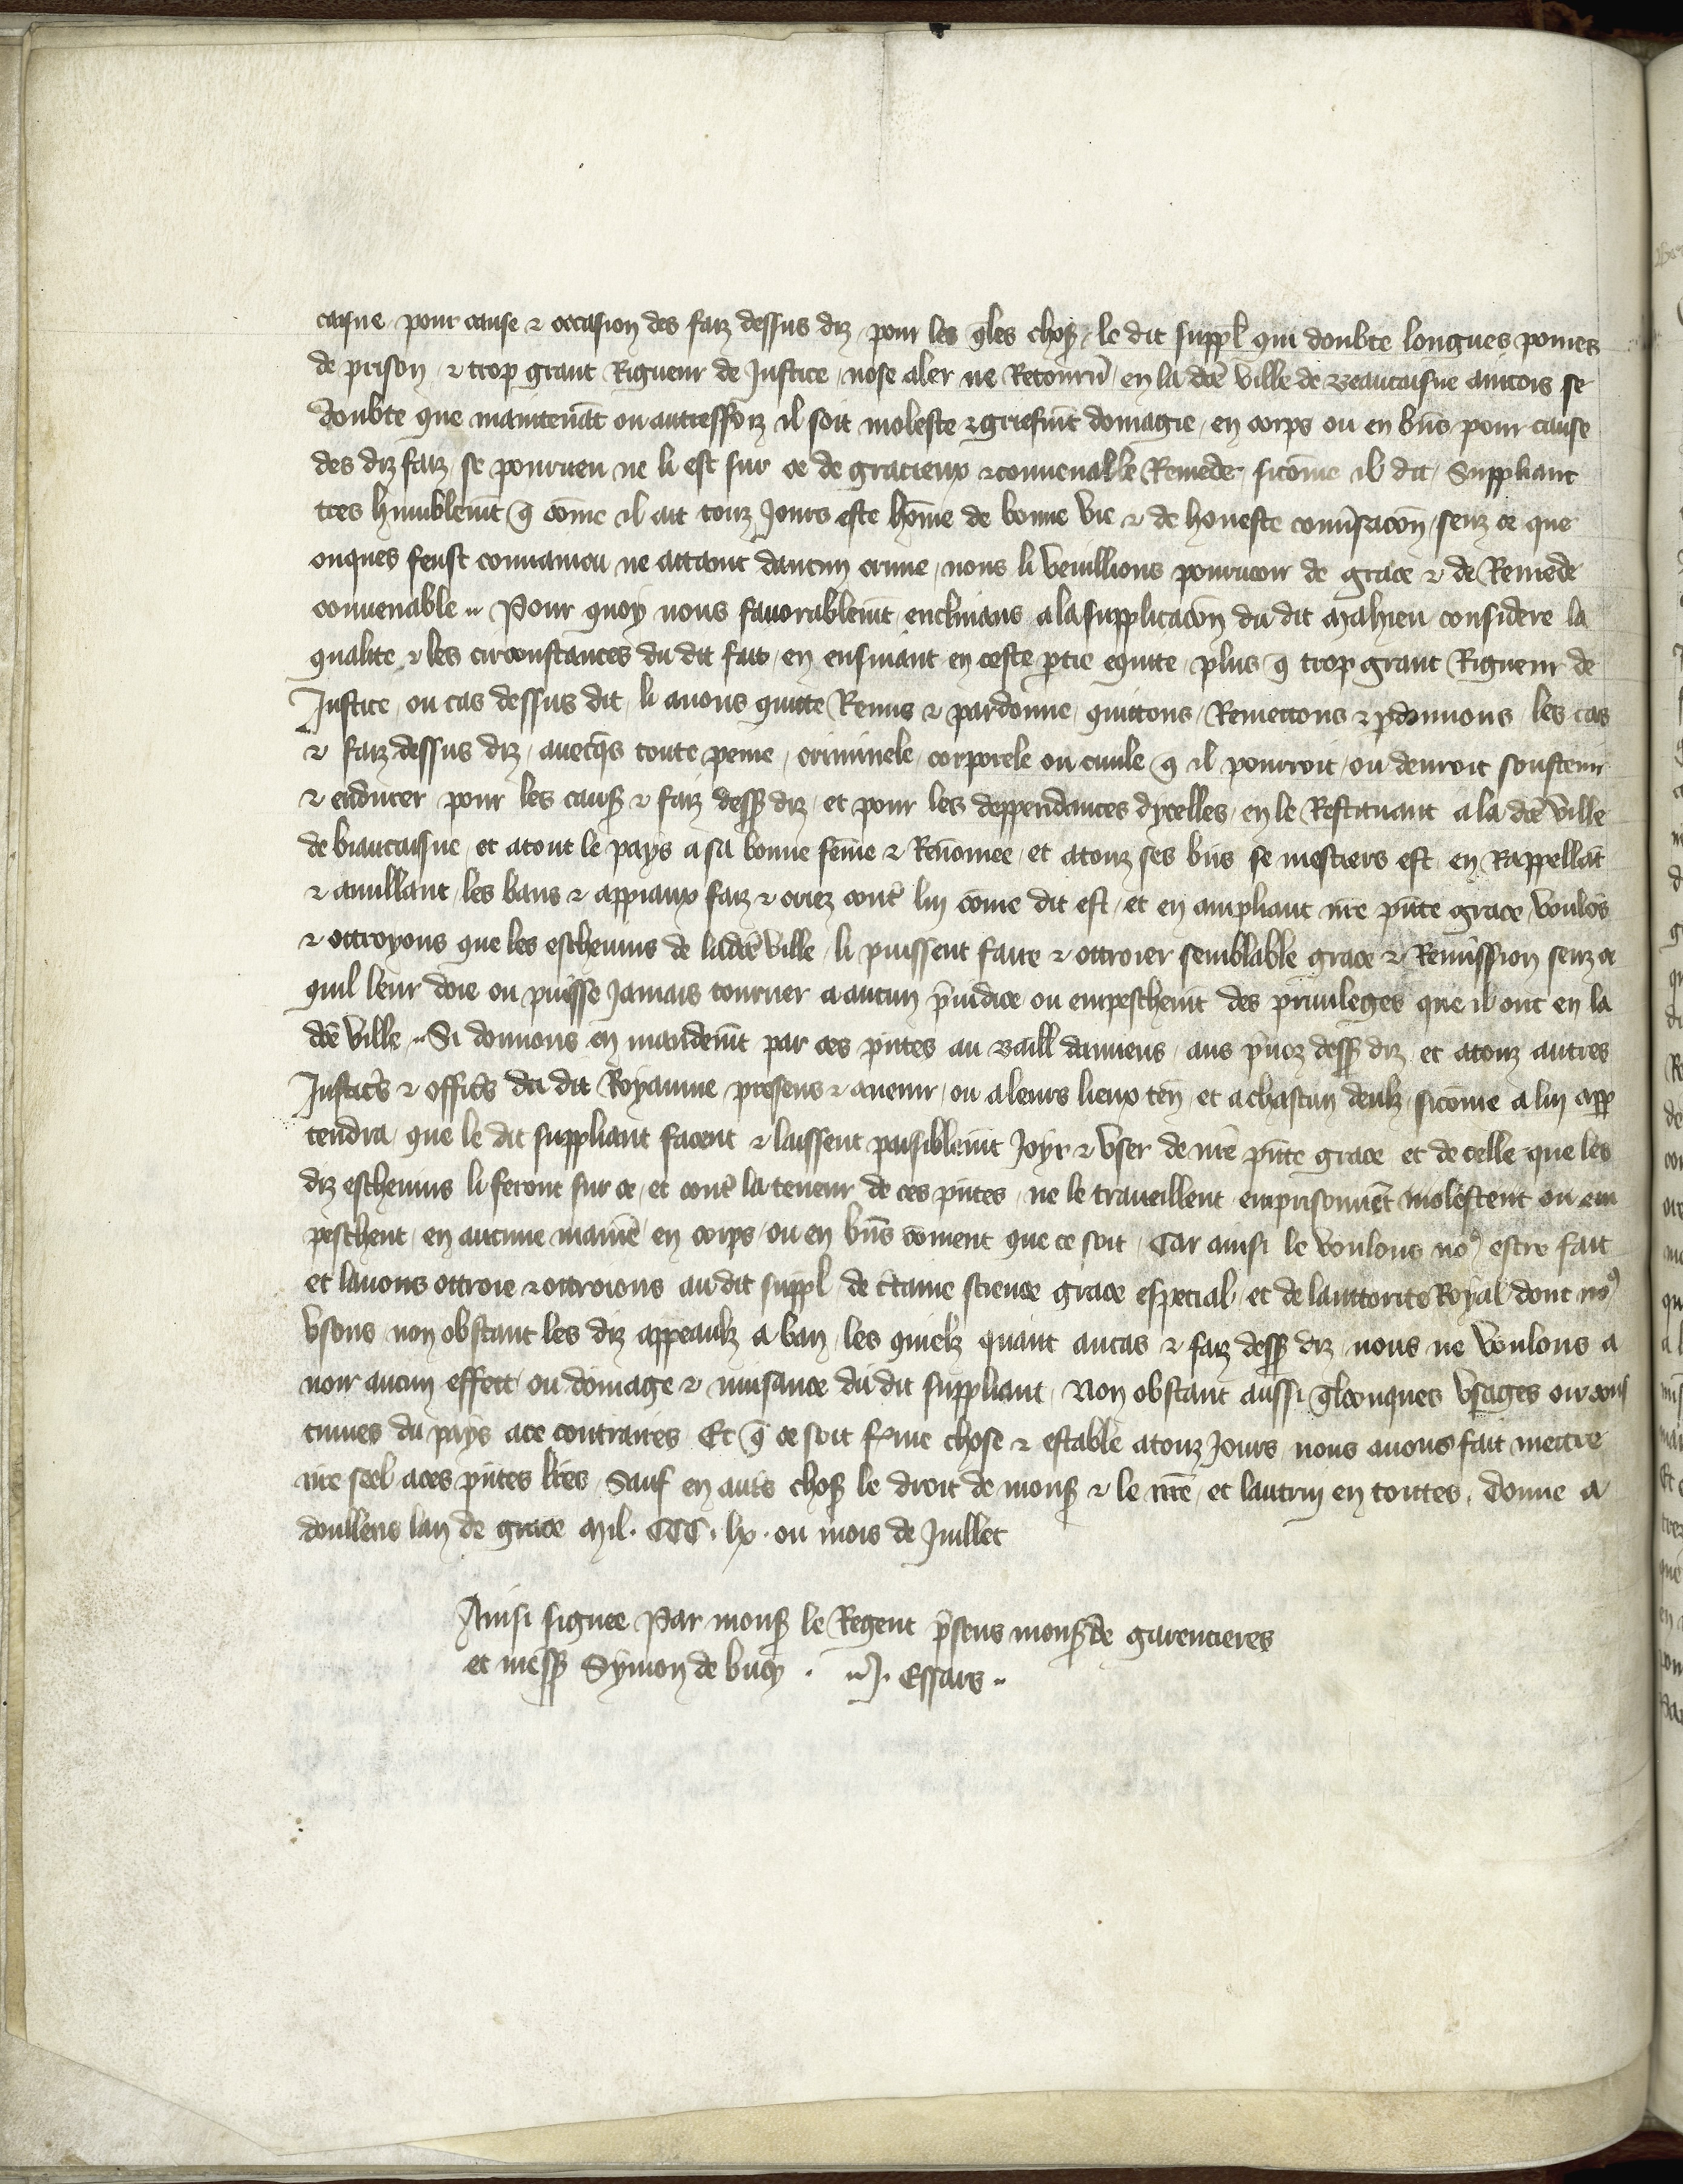 caisne pour cause & occasion des faiz dessus diz pour les q̄les chosꝭ le dit suppl̃ qui doubte longues poines
de prison & trop grant Rigueur de Justice nose aler ne Retourñ en la dc̄e ville de Beaucaisne aincois se
doubte que maintenāt ou autresfoiz il soit moleste & griefm̄t domagie en corps ou en bn̄s pour cause
des diz faiz se pourueu ne li est sur ce de gracieux & conuenable Remede sicōme il dit Suppliant
tres humblem̄t q̄ cōme il ait touz Jours este hōme de bonne vie & de honeste conũsacōn senz ce que
onques feust conuaincu ne attaint daucun crime nous li veuillions pourueoir de grace & de Remede
conuenable Pour quoy nous fauorablem̄t enclinans a la supplicacōn du dit Mahieu considere la
qualite & les circonstances du dit fait en ensuiant en ceste ꝑtie equite plus q̄ trop grant Rigueur de
Justice ou cas dessus dit li auons quitte Remis & pardonne quittons Remettons & ꝑdonnons les cas
& faiz dessus diz auecq̄s toute peine criminele corporele ou ciuile q̄ il pourroit ou deuroit soustenir
& endurer pour les causꝭ & faiz dessꝭ diz et pour les deppendances dycelles en le Restituant a la dc̄e ville
de biaucaisne et a tout le pays a sa bonne feme & Renomee et a touz ses bn̄s se mestiers est en Rappellāt
& anullant les bans & appiaux faiz & criez contˀ lui cōme dit est et en ampliant nr̄e pn̄te grace voulōs
& ottroyons que les escheuins de ladc̄e ville li puissent faire & ottroier semblable grace & Remission senz ce
quil leur doie ou puisse Jamais tourner a aucun p̄iudice ou empeschem̄t des priuileges que il ont en la
dc̄e ville Si donnons en mandem̄t par ces pn̄tes au Baill̃ damiens aus p̄uoz dessꝭ diz et a touz autres
Justicˀs & officˀs du dit Royaume presens & auenir ou a leurs lieux teñ et a chascun deulz sicōme a lui app
tendra que le dit suppliant facent & laissent paisiblem̄t Joyr & vser de nr̄e pn̄te grace et de celle que les
diz escheuins li feront sur ce et contˀ la teneur de ces pn̄tes ne le traueillent emprisonnēt molestent ou em
peschent en aucune manieˀ en corps ou en bn̄s cōment que ce soit Car ainsi le voulons noꝰ estre fait
et lauons ottroie & ottroions au dit suppl̃ de cˀtaine science grace especial et de lauttorite Royal dont noꝰ
vsons non obstant les diz appeaulz a ban les quielz quant au cas & faiz dessꝭ diz nous ne voulons a
uoir aucun effect ou dōmage & nuisance du dit suppliant Non obstant aussi q̄lconques vsages ou cous
tumes du pays a ce contraires Et q̄ ce soit fˀme chose & estable a touz Jours nous auons fait mettre
nr̄e seel a ces pn̄tes lr̄es Sauf en autˀs chosꝭ le droit de monsꝭ & le nr̄e et lautruy en toutes Donne a
doullens lan de grace Mil. CCC. lx. ou mois de Juillet
Ainsi signee Par monsꝭ le Regent p̄sens monsꝭ de garencieres
et messꝭ Symon de bucy . J. Essars